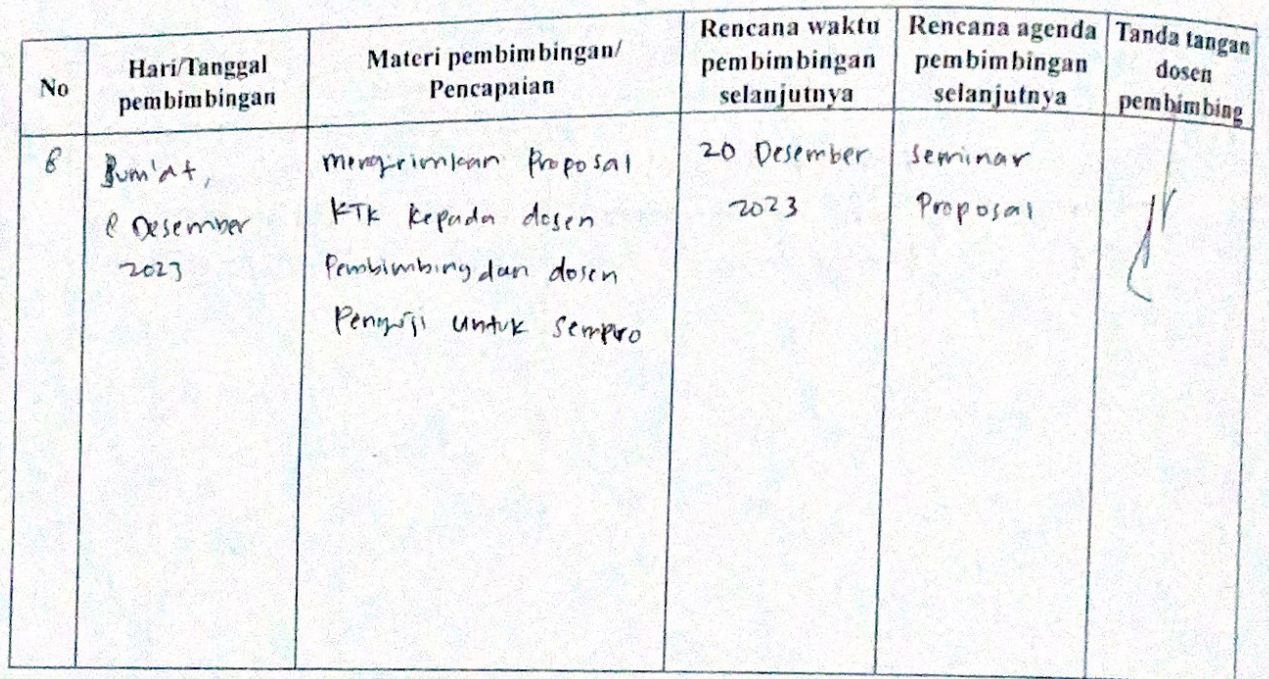 No
Hari/Tanggal
pembimbingan
Materi pembimbingan/
Pencapaian
Rencana waktu
pembimbingan
selanjutnya
Rencana agenda
pembimbingan
selanjutnya
Tanda tangan
dosen
pembimbing
8
Jum'at,
8 Desember
2023
mengirimkan Proposal
KTK kepada dosen
Pembimbing dan dosen
Penguji untuk sempro
20 Desember
2023
seminar
Proposal